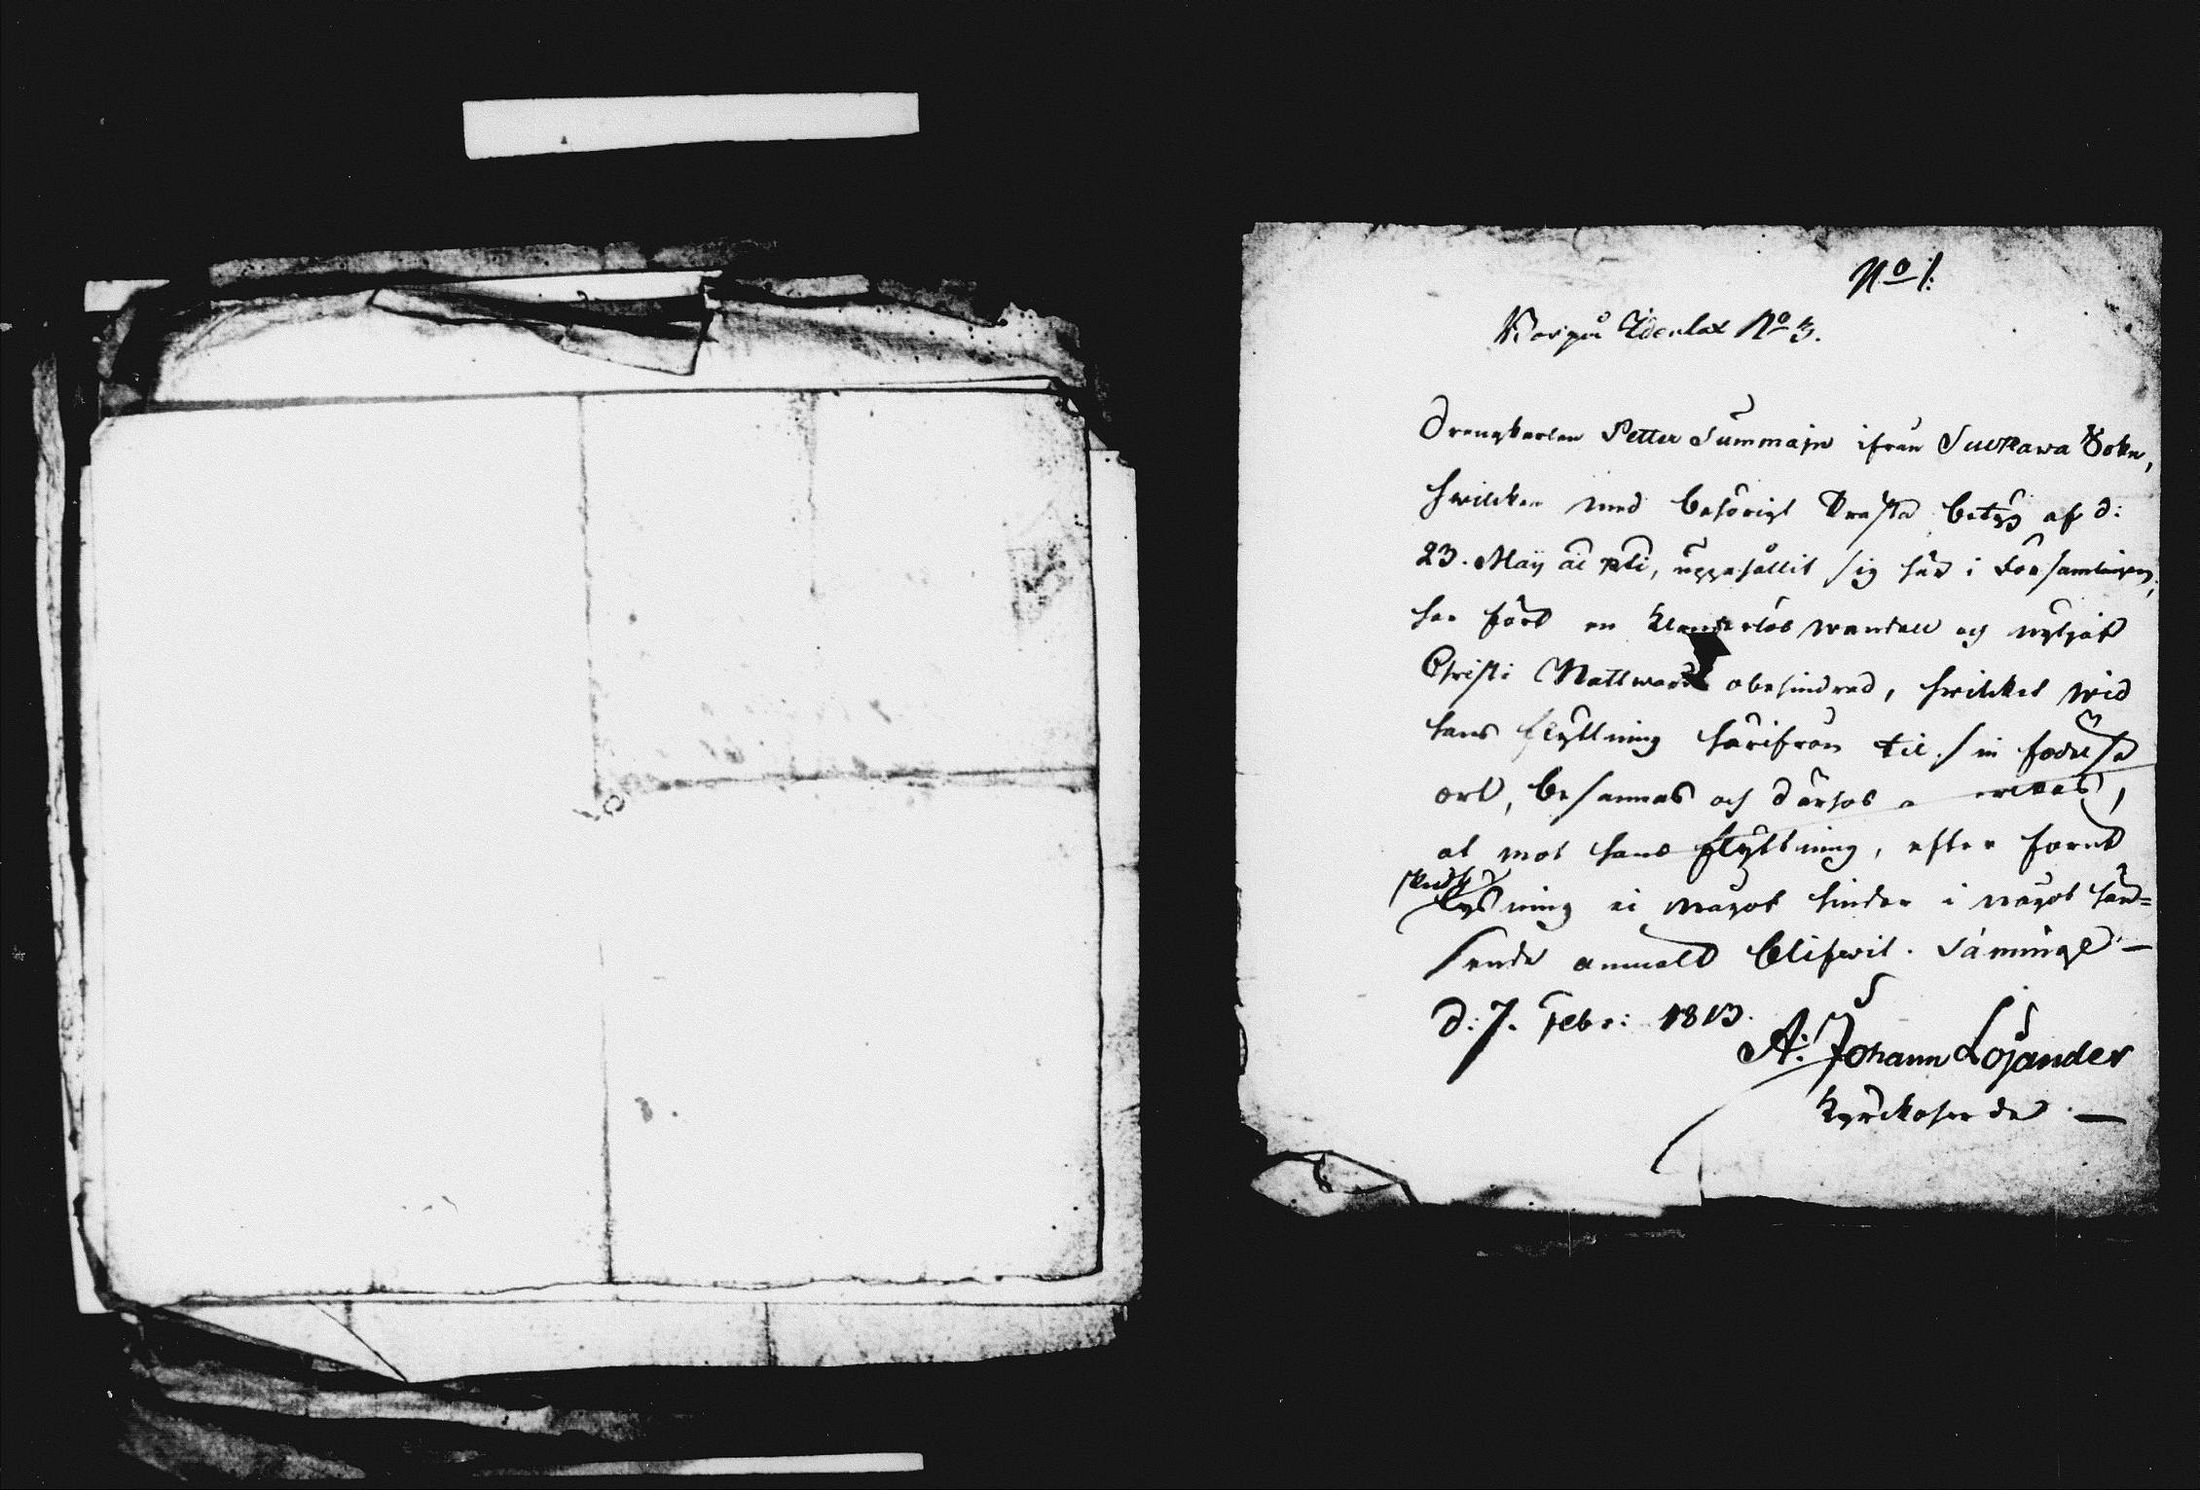 No 1.
Wospa Ydenlax No 3.
Drengkarlen Petter Summain ifrån Sulkawa Sokn,
hwilken med behörigt Prästa betyg af d:
23. Maij ai pti, uppehållit sig här i Församlingen,
har fört en klanderlös wandell och nyttjat
Christi Nattward obehindrad, hwilket wid
hans flyttning härifrån til sin födelse
ort, besannas och därhos
at mot hans flyttning, efter förut
skedd
lysning ei något hinder i något hän-
seende anmält blifwit. Säminge
d: 7. Febr: 1813.
A: Johann Löjander
Kyrckoherde